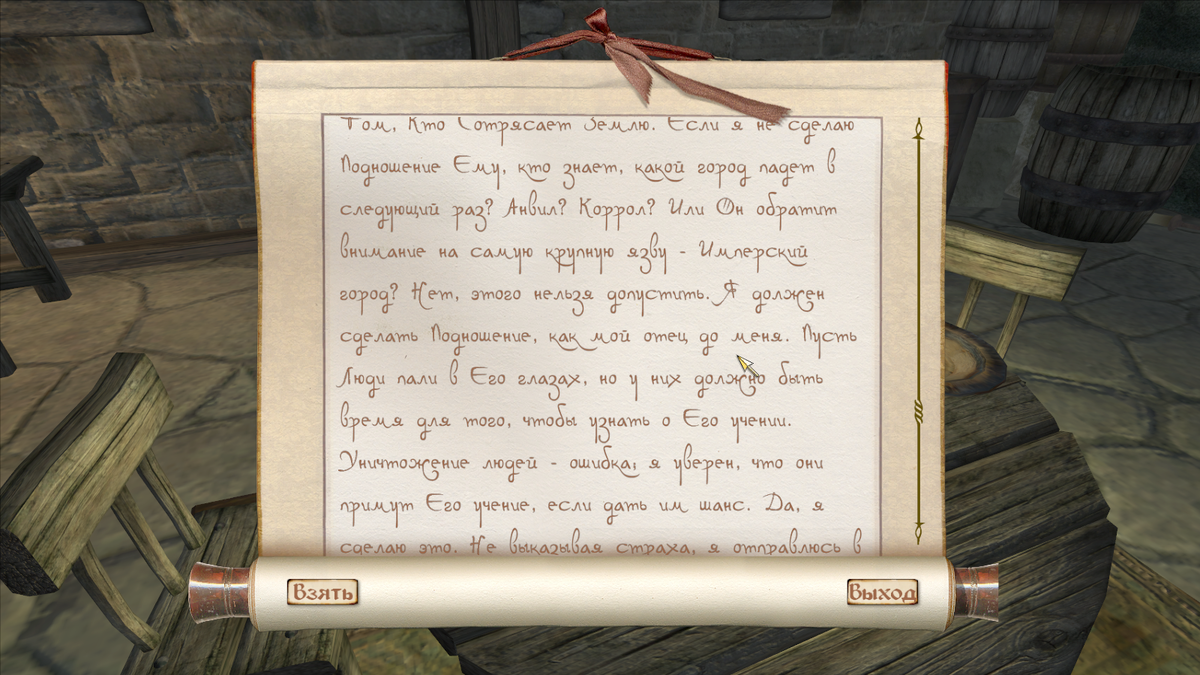 Том, Кто Сотрясает Землю. Если я не сделаю
Подношение Ему, кто знает, какой город падет в
следующий раз? Анвил? Коррол? Или Он обратит
внимание на самую крупную язву - Имперский
город? Нет, этого нельзя допустить. Я должен
сделать Подношение, как мой отец до меня. Пусть
Люди пали в Его глазах, но у них должно быть
время для того, чтобы узнать о Его учении.
Уничтожение людей - ошибка; я уверен, что они
примут Его учение, если дать им шанс. Да, я
сделаю это. Не выказывая страха, я отправлюсь в
Взять
Выход